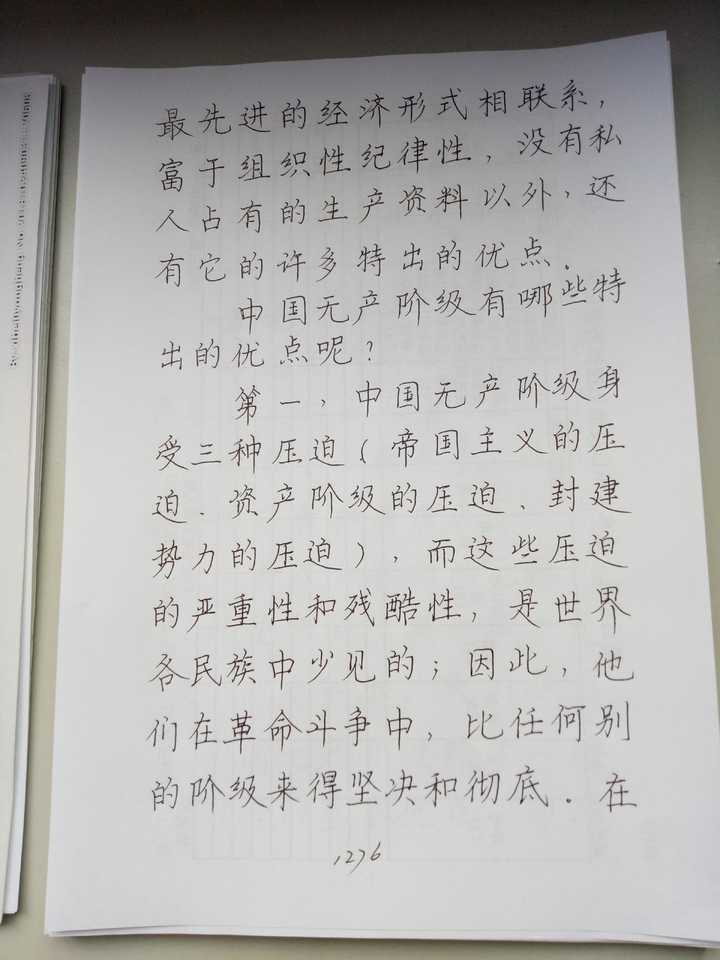 最先进的经济形式相联系，
富于组织性纪律性，没有私
人占有的生产资料以外，还
有它的许多特出的优点.
中国无产阶级有哪些特
出的优点呢？
第一，中国无产阶级身
受三种压迫（帝国主义的压
迫、资产阶级的压迫、封建
势力的压迫），而这些压迫
的严重性和残酷性，是世界
各民族中少见的；因此，他
们在革命斗争中，比任何别
的阶级来得坚决和彻底.在
1276